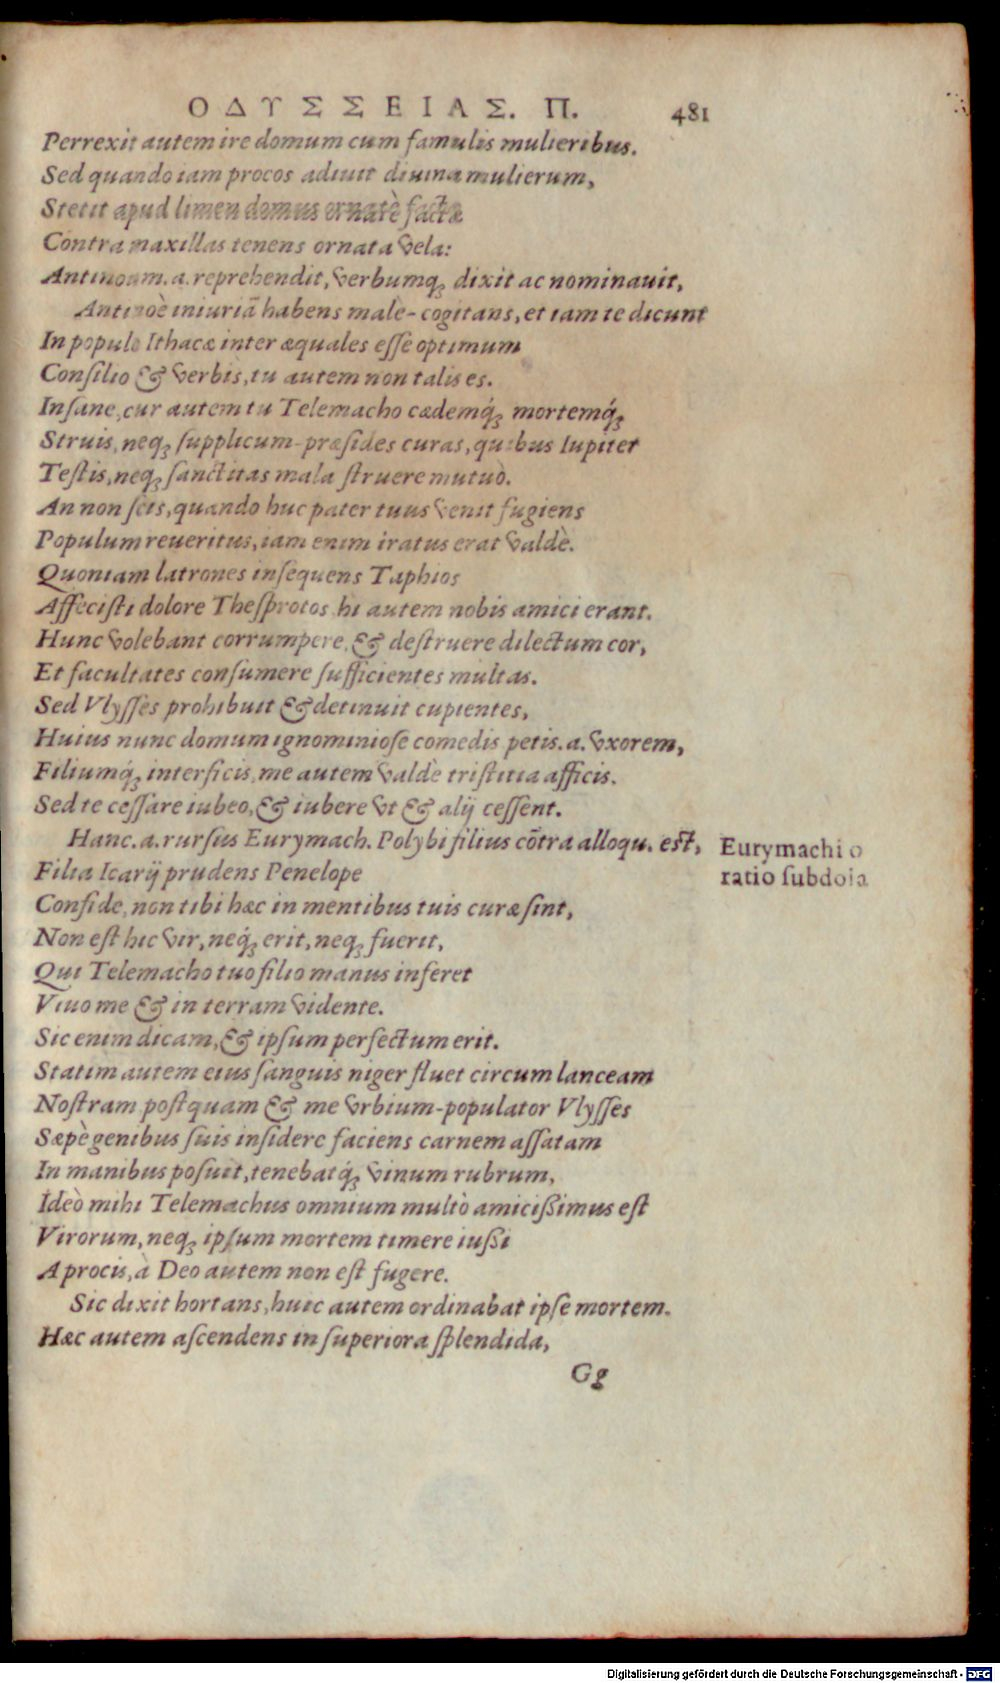 ΟΔΥΣΣΕΙΑΣ. Π. 481
Perrexit autem ire domum cum famulis mulieribus.
Sed quando iam procos adiuit diuina mulierum,
Stetit apud limen domus ornatè factæ
Contra maxillas tenens ornata vela:
Antinoum. a. reprehendit, verbumq́; dixit ac nominauit,
Antinoè iniuriā habens malè-cogitans, et iam te dicunt
In populo Ithacæ inter æquales esse optimum
Consilio & verbis, tu autem non talis es.
Insane, cur autem tu Telemacho cædemq́; mortemq́;
Struis, neq; supplicum-præsides curas, quibus Iupiter
Testis, neq; sanctitas mala struere mutuò.
An non scis, quando huc pater tuus venit fugiens
Populum reueritus, iam enim iratus erat valdè.
Quoniam latrones insequens Taphios
Affecisti dolore Thesprotos, hi autem nobis amici erant.
Hunc volebant corrumpere, & destruere dilectum cor,
Et facultates consumere sufficientes multas.
Sed Vlysses prohibuit & detinuit cupientes,
Huius nunc domum ignominiose comedis petis. a. vxorem,
Filiumq́; interficis, me autem valdè tristitia afficis.
Sed te cessare iubeo, & iubere vt & alij cessent.
Hanc. a. rursus Eurymach. Polybi filius cōtra alloqu. est,
Eurymachi o
ratio subdola
Filia Icarij prudens Penelope
Confide, non tibi hæc in mentibus tuis curæ sint,
Non est hic vir, neq́; erit, neq; fuerit,
Qui Telemacho tuo filio manus inferet
Viuo me & in terram vidente.
Sic enim dicam, & ipsum perfectum erit.
Statim autem eius sanguis niger fluet circum lanceam
Nostram, postquam & me vrbium-populator Vlysses
Sæpè genibus suis insidere faciens carnem assatam
In manibus posuit, tenebatq́; vinum rubrum,
Ideò mihi Telemachus omnium multò amicißimus est
Virorum, neq; ipsum mortem timere iußi
A procis, à Deo autem non est fugere.
Sic dixit hortans, huic autem ordinabat ipse mortem.
Hæc autem ascendens in superiora splendida,
Gg
Digitalisierung gefördert durch die Deutsche Forschungsgemeinschaft - DFG